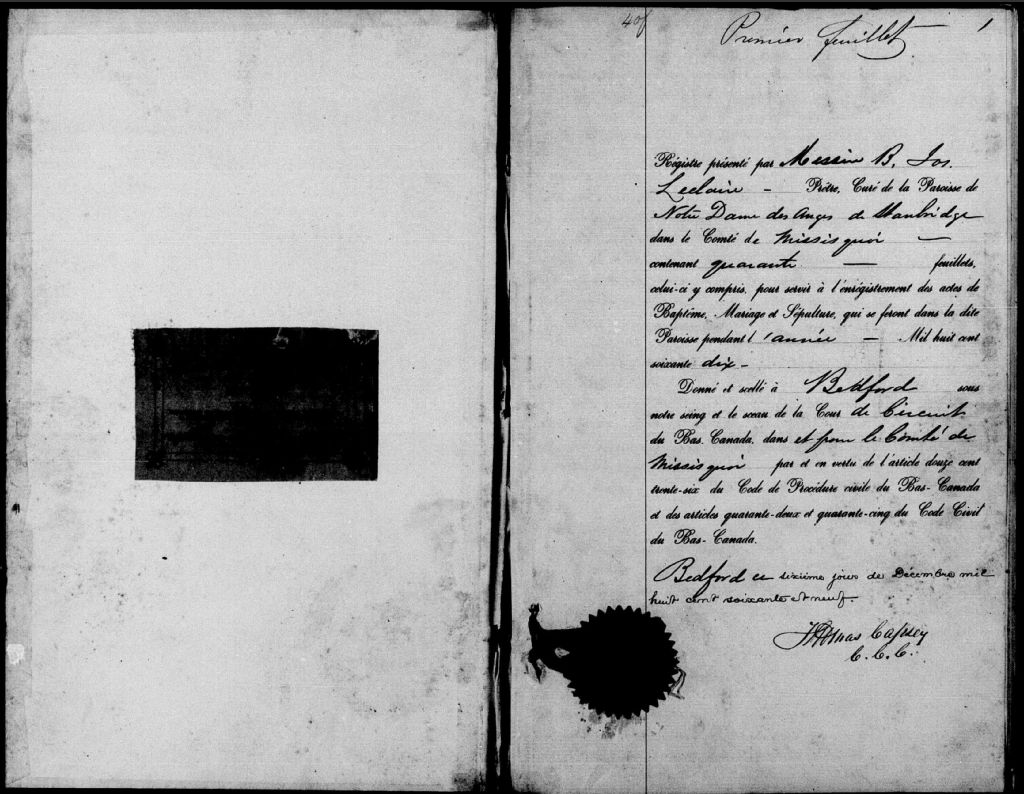 40f
Premier feuillet
1
Régistre présenté par Messire B. Jos.
Leclaire – Prêtre, Curé de la Paroisse de
Notre Dame des Anges de Stanbridge
dans le Comté de Missisquoi —
contenant quarante — feuillets,
celui-ci y compris, pour servir à l'enrégistrement des actes de
Baptême, Mariage et Sépulture, qui se feront dans la dite
Paroisse pendant l'année — Mil huit cent
soixante dix –
Donné et scellé à Bedford sous
notre seing et le sceau de la Cour de Circuit
du Bas-Canada, dans et pour le Comté de
Missisquoi par et en vertu de l'article douze cent
trente-six du Code de Procédure civile du Bas-Canada
et des articles quarante-deux et quarante-cinq du Code Civil
du Bas-Canada.
Bedford ce sixième jours de Décembre mil
huit cent soixante et neuf.
Thomas
C.C.C.